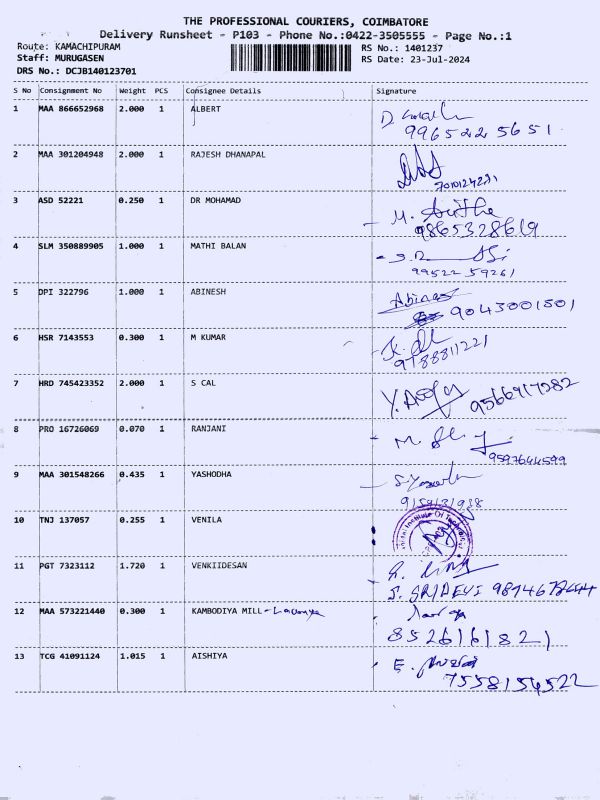 THE PROFESSIONAL COURIERS, COIMBATORE
Delivery Runsheet - P103 - Phone No.:0422-3505555 - Page No.:1
Route: KAMACHIPURAM RS No.: 1401237
Staff: MURUGASEN RS Date: 23-Jul-2024
DRS No.: DCJB140123701
S No Consignment No Weight PCS Consignee Details Signature
1 MAA 866652968 2.000 1 ALBERT
2 MAA 301204948 2.000 1 RAJESH DHANAPAL
3 ASD 52221 0.250 1 DR MOHAMAD
9865328619
4 SLM 350889905 1.000 1 MATHI BALAN
99522 59261
5 DPI 322796 1.000 1 ABINESH Abines
9043001501
6 HSR 7143553 0.300 1 M KUMAR
9788811221
7 HRD 745423352 2.000 1 S CAL
9566917282
8 PRO 16726069 0.070 1 RANJANI
9597644599
9 MAA 301548266 0.435 1 YASHODHA
10 TNJ 137057 0.255 1 VENILA Institute Of
11 PGT 7323112 1.720 1 VENKIIDESAN
S. SRIDEVI
12 MAA 573221440 0.300 1 KAMBODIYA MILL
8526161821
13 TCG 41091124 1.015 1 AISHIYA
7558154522